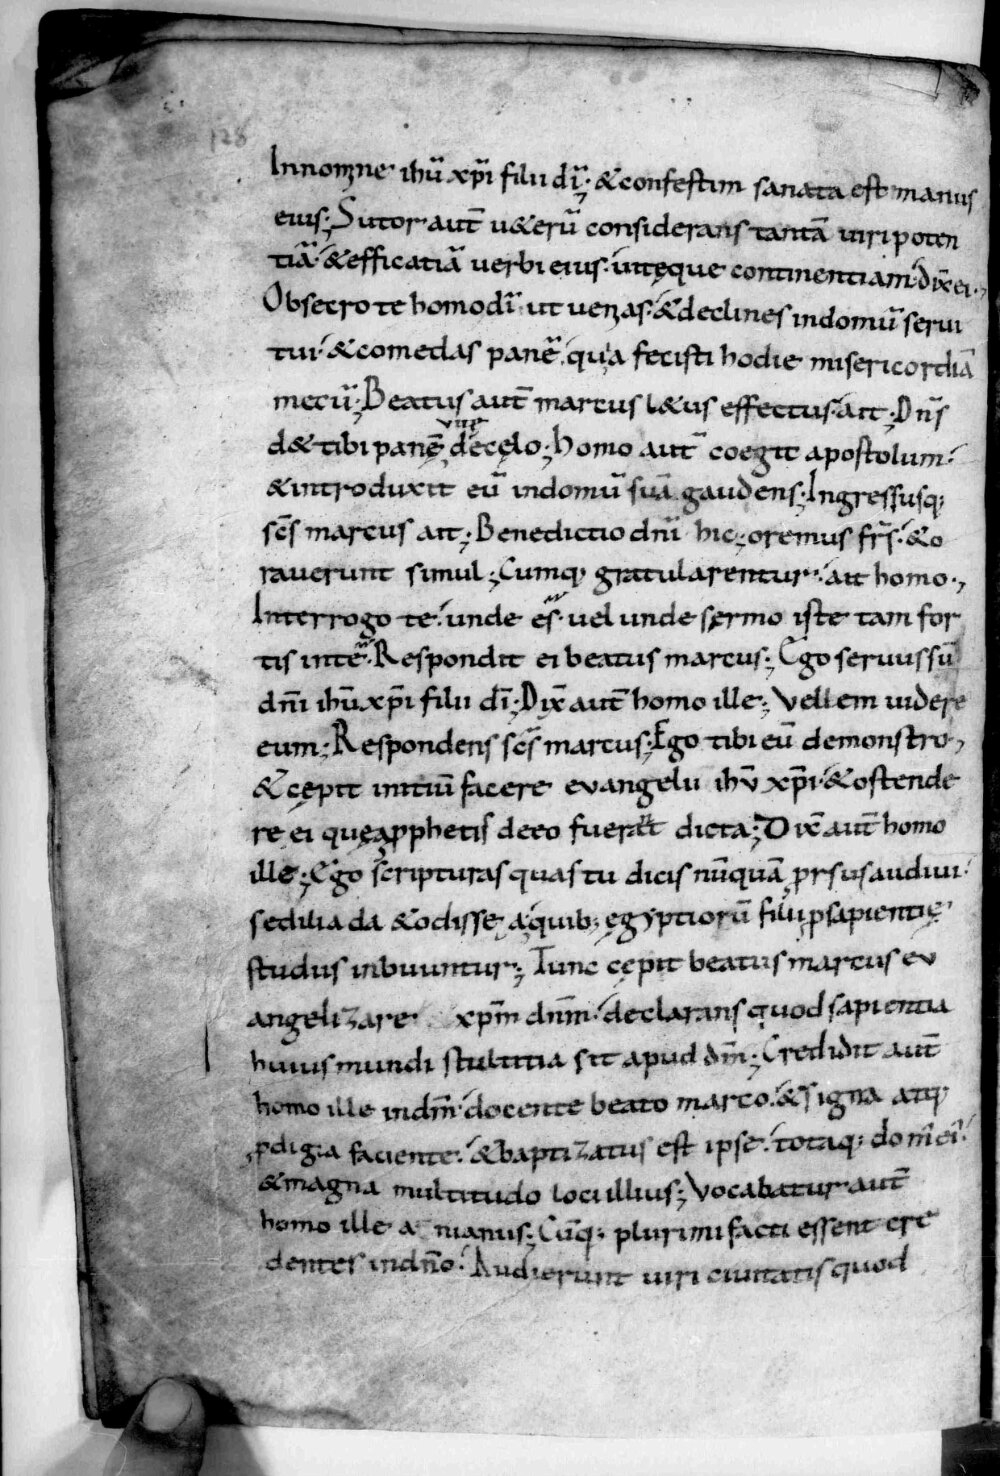 128
In nomīne ihū xp̄i filii dī; & confestim sanata est manus
eius; Sutor aut̄ u&erū considerans tantā uiri poten
tiā· & efficatiā uerbi eius· uitęque continentiam· dix̄ ei·,
Obsecro te homo dī· ut uenias· & declines in domū serui
tui· & comedas panē· quia fecisti hodie misericordiā
mecū; Beatus aut̄ marcus l&us effectus· ait; Dn̄s
d& tibi panē vitę de cęlo; Homo aut̄ coegit apostolum·
& introduxit eū in domū suā gaudens; Ingressusq;
sc̄s marcus ait; Benedictio dn̄i hic; oremus fr̄s· & o
rauerunt simul; Cumq; gratularentur· ait homo·,
Interrogo te· unde es· uel unde sermo iste tam for
tis in te· Respondit ei beatus marcus; Ego seruus sū
dn̄i ihū xp̄i filii dī; Dix̄ aut̄ homo ille; Vellem uidere
eum; Respondens sc̄s marcus; Ego tibi eū demonstro·,
& cępit initiū facere evangelii ihv̄ xp̄i· & ostende
re ei quę a pphetis de eo fuerāt dicta; Dix̄ aut̄ homo
ille; Ego scripturas quas tu dicis nūquā prsus audiui·
sed iliada & odisse, a quib; ęgyptiorū filii p sapientię
studiis inbuuntur; Tunc cępit beatus marcus ev
angelizare xpm̄ dnm̄· declarans quod sapientia
huius mundi stultitia sit apud dm̄; Credidit aut̄
homo ille in dm̄· docente beato marco· & signa atq;
pdigia faciente· & baptizatus est ipse· totaq; dom̄ ei·
& magna multitudo loci illius; Vocabatur aut̄
homo ille a nianus; Cūq; plurimi facti essent cre
dentes in dn̄o· Audierunt uiri ciuitatis quod